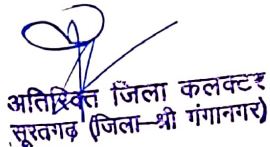 अतिरिक्त जिला कलक्टर
सूरतगढ़ (जिला–श्री गंगानगर)